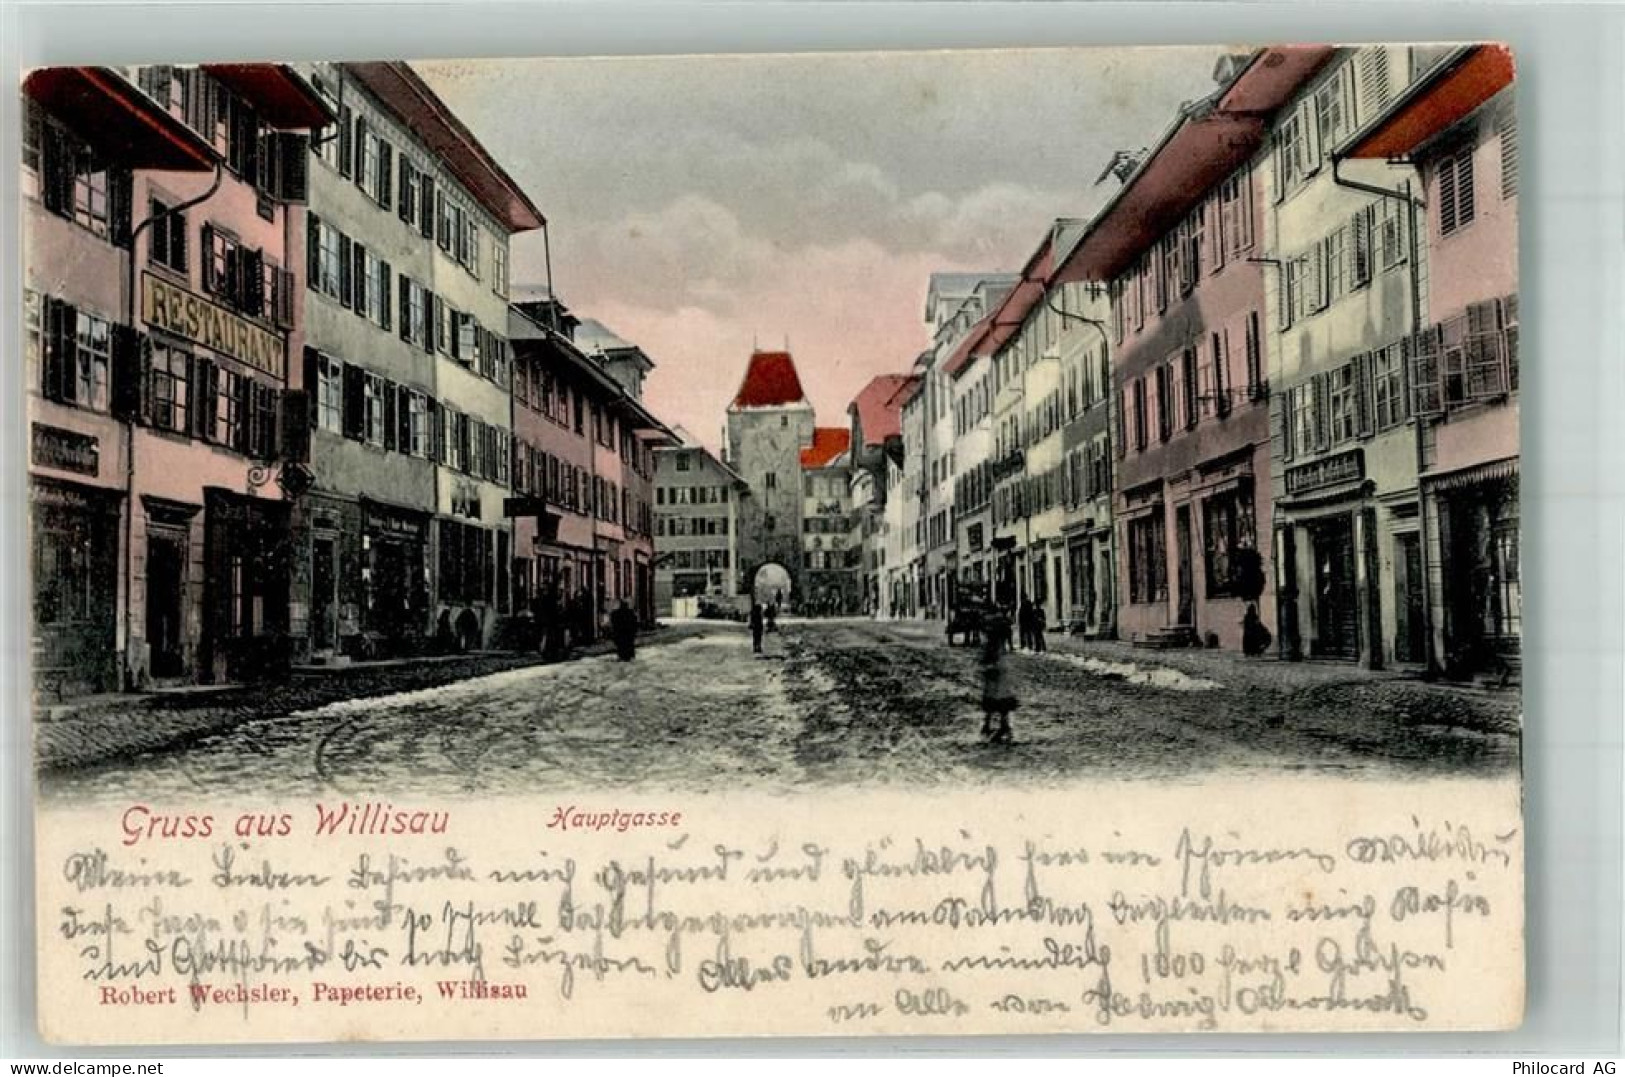 RESTAURANT
Gruss aus Willisau Hauptgasse
Meine Lieben befinde mich gesund und glücklich hier im schönen Willisau
diese Tage o sie sind so schnell dahingegangen am Samstag begleiten mich Sofie
und Gottfried bis nach Luzern. Alles andre mündlich 1000 herzl Grüsse
an Alle von Hedwig Odermatt
Robert Wechsler, Papeterie, Willisau
Philocard AG